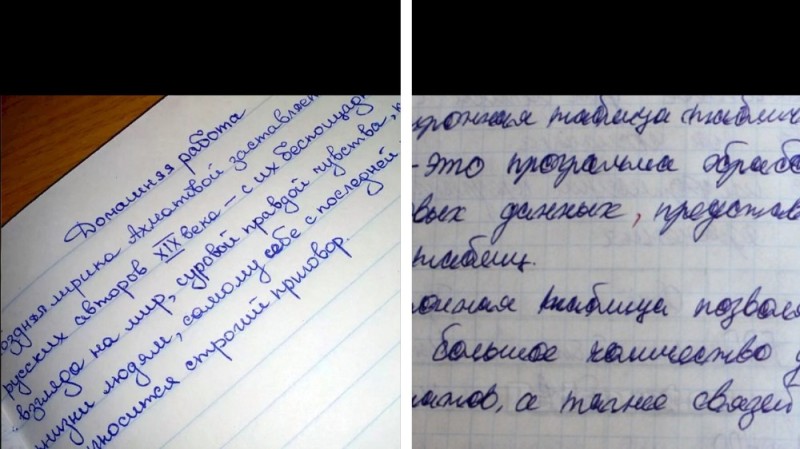 Домашняя работа
оздняя лирика Ахматовой заставляет
русских авторов XIX века – с их беспощадн
взгляда на мир, суровой правдой чувства, к
жизни людям, самому себе с последней
носится строгий приговор.
ронная таблица (таблич
-это программа обрабо
вых данных, представ
таблиц.
онная таблица позволя
большое количество
а также связей